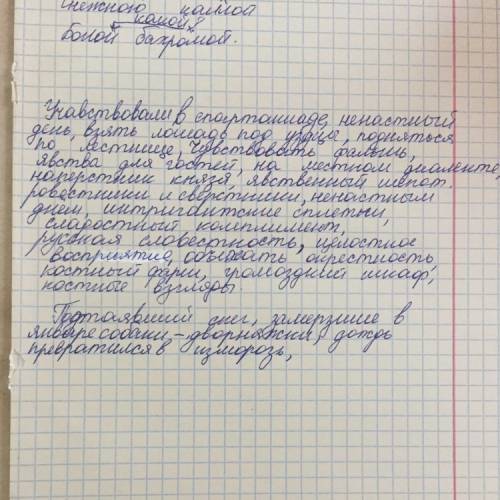 снежною каймой
какой?
Белой бахромой.
Учавствовали в спартакиаде, ненастный
день, взять лошадь под уздца, подняться
по лестнице, чувствовать фальшь,
явства для гостей, на местном диалекте,
наперстник князя, явственный шепот.
ровестники и сверстники, ненастным
днём, интригантские сплетни,
сладостный комплимент,
русская словестность, целостное
восприятие, объезжать окрестность
костный фарш, громоздкий шкаф,
костные взгляды.
Подтаявший снег, замерзшие в
январе собаки - дворняжки, дождь
превратился в изморозь,